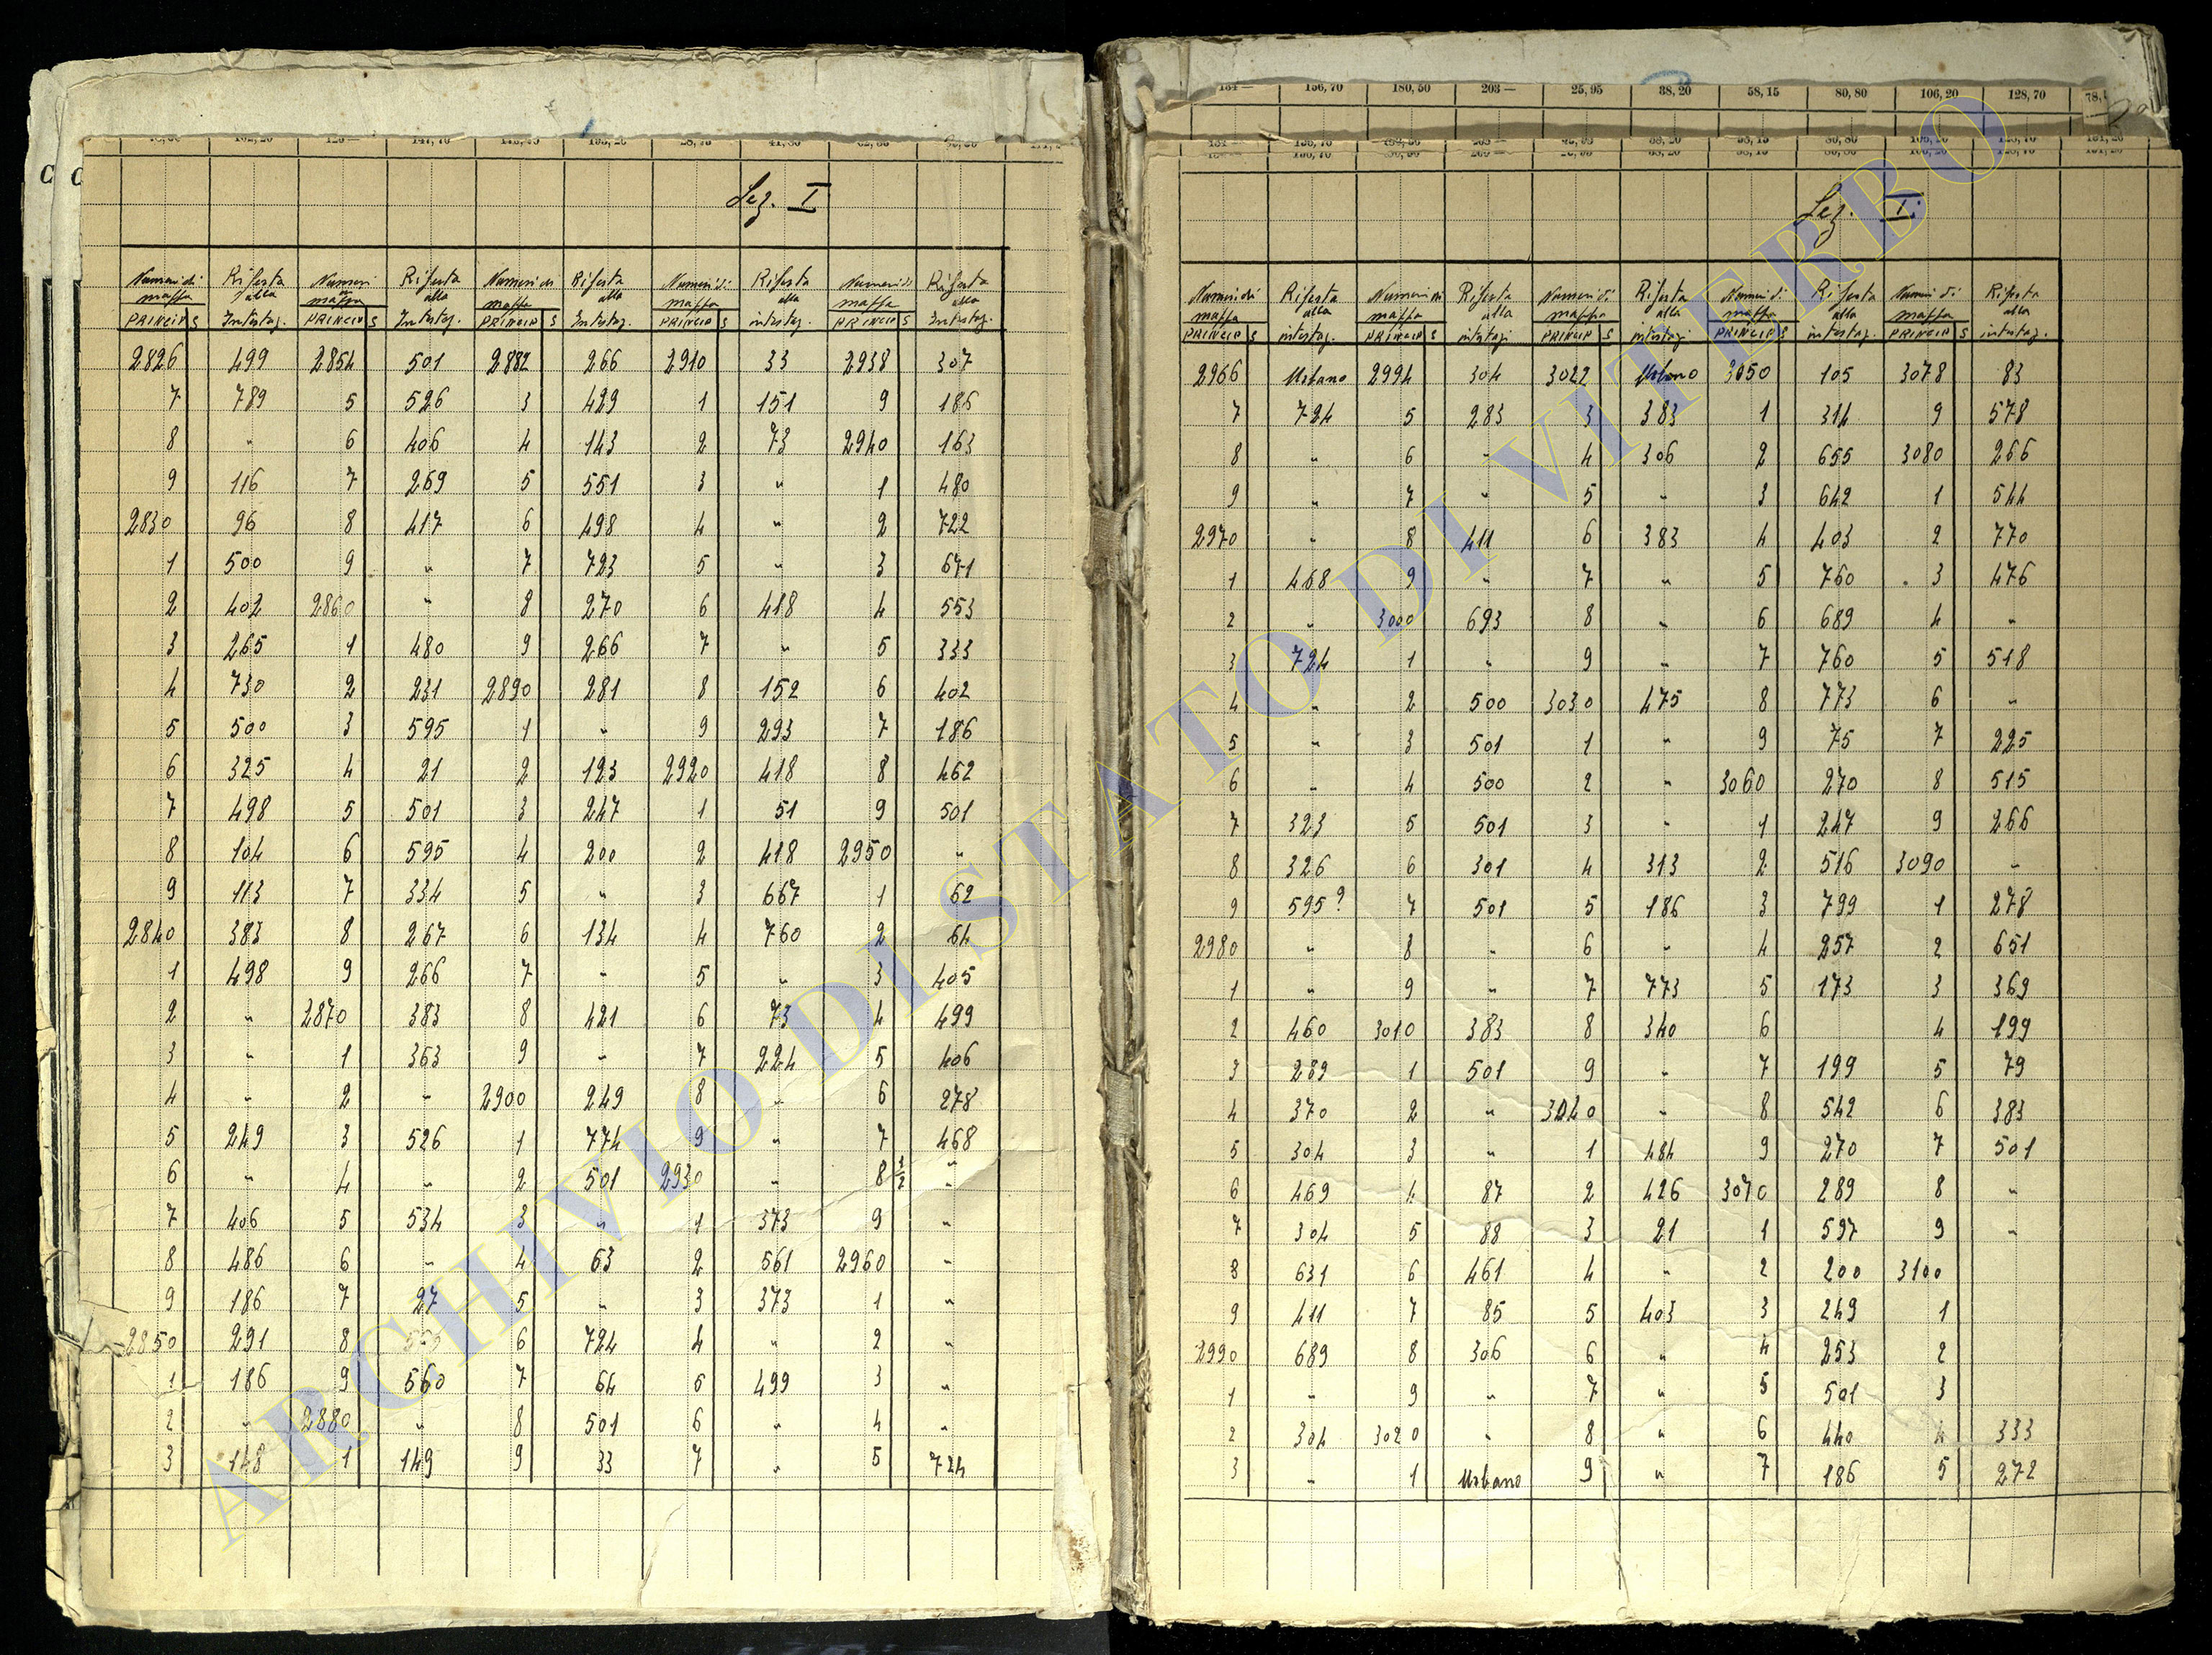 Sez. I
Numeri di mappa Rifesta alla Intestaz. Numeri di mappa Rifesta alla Intestaz. Numeri di mappa Rifesta alla Intestaz. Numeri di mappa Rifesta alla intestaz. Numeri di mappa Rifesta alla Intestaz.
PRINCIP S PRINCIP S PRINCIP S PRINCIP S PRINCIP S
2826 499 2854 501 2882 266 2910 33 2938 307
7 789 5 526 3 429 1 151 9 186
8 " 6 406 4 143 2 73 2940 163
9 116 7 269 5 551 3 " 1 480
2830 96 8 417 6 498 4 " 2 722
1 500 9 " 7 723 5 " 3 671
2 402 2860 " 8 270 6 418 4 553
3 265 1 480 9 266 7 " 5 333
4 730 2 231 2890 281 8 152 6 402
5 500 3 595 1 " 9 293 7 186
6 325 4 21 2 123 2920 418 8 462
7 498 5 501 3 247 1 51 9 501
8 104 6 595 4 200 2 418 2950 "
9 113 7 334 5 " 3 667 1 62
2840 383 8 267 6 134 4 760 2 64
1 498 9 266 7 " 5 " 3 405
2 " 2870 383 8 421 6 73 4 499
3 " 1 363 9 " 7 224 5 406
4 " 2 " 2900 249 8 " 6 278
5 249 3 526 1 774 9 " 7 468
6 " 4 " 2 501 2930 " 8 1/2 "
7 406 5 534 3 " 1 373 9 "
8 486 6 " 4 63 2 561 2960 "
9 186 7 27 5 " 3 373 1 "
2850 291 8 6 724 4 " 2 "
1 186 9 560 7 64 5 499 3 "
2 " 2880 " 8 501 6 " 4 "
3 148 1 149 9 33 7 " 5 724
134 — 156, 70 180, 50 203 — 25, 95 38, 20 58, 15 80, 80 106, 20 128, 70
Sez. I.
Numeri di mappa Rifesta alla intestaz. Numeri di mappa Rifesta alla intestaz Numeri di mappa Rifesta alla intestaz Numeri di mappa Rifesta alla intestaz. Numeri di mappa Rifesta alla intestaz.
PRINCIP S PRINCIP S PRINCIP S PRINCIP S PRINCIP S
2966 Urbano 2994 304 3022 Urbano 3050 105 3078 83
7 724 5 283 3 383 1 314 9 578
8 " 6 " 4 306 2 655 3080 266
9 " 7 " 5 " 3 642 1 544
2970 " 8 411 6 383 4 403 2 770
1 468 9 " 7 " 5 760 3 476
2 " 3000 693 8 " 6 689 4 "
3 724 1 " 9 " 7 760 5 518
4 " 2 500 3030 475 8 773 6 "
5 " 3 501 1 " 9 75 7 225
6 " 4 500 2 " 3060 270 8 515
7 323 5 501 3 " 1 247 9 266
8 326 6 301 4 313 2 516 3090 "
9 595? 7 501 5 186 3 799 1 278
2980 " 8 " 6 " 4 257 2 651
1 " 9 " 7 773 5 173 3 369
2 460 3010 383 8 340 6 4 199
3 289 1 501 9 " 7 199 5 79
4 370 2 " 3040 " 8 542 6 383
5 304 3 " 1 484 9 270 7 501
6 469 4 87 2 426 3070 289 8 "
7 304 5 88 3 21 1 597 9 "
8 631 6 461 4 " 2 200 3100
9 411 7 85 5 403 3 249 1
2990 689 8 306 6 " 4 253 2
1 " 9 " 7 " 5 501 3
2 304 3020 " 8 " 6 440 4 333
3 " 1 Urbano 9 " 7 186 5 272
ARCHIVIO DI STATO DI VITERBO